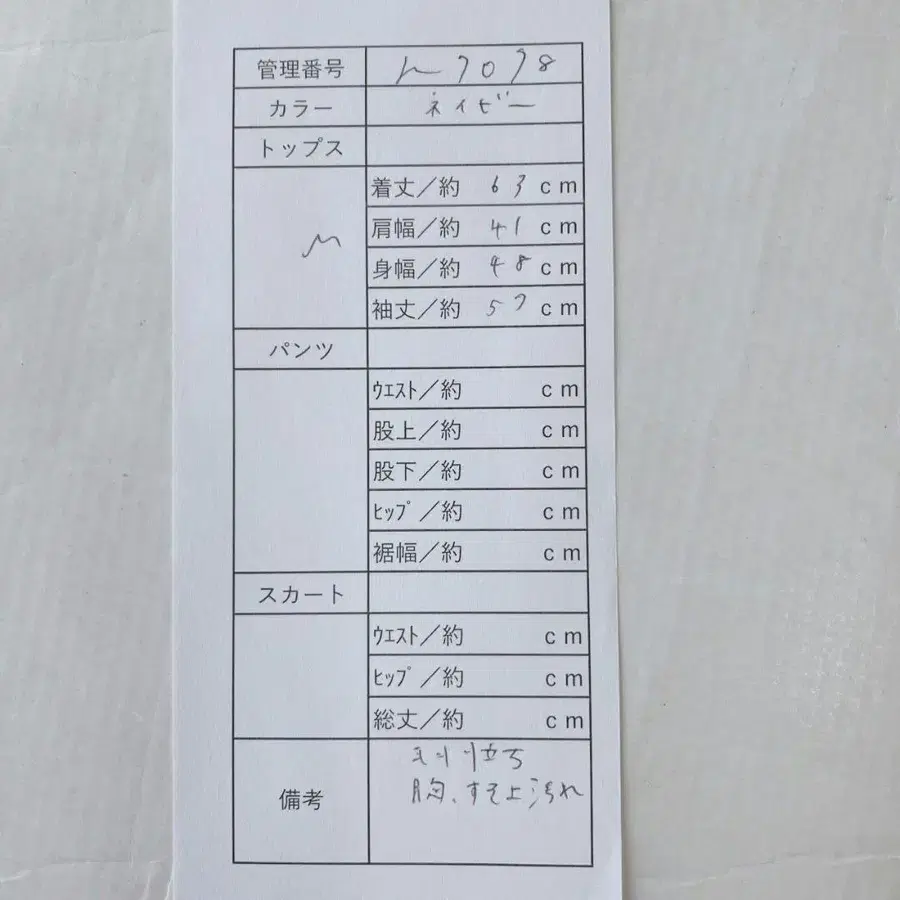 管理番号 h7078
カラー ネイビー
トップス
M
着丈／約 63 cm
肩幅／約 41 cm
身幅／約 48 cm
袖丈／約 57 cm
パンツ
ｳｴｽﾄ／約 cm
股上／約 cm
股下／約 cm
ﾋｯﾌﾟ／約 cm
裾幅／約 cm
スカート
ｳｴｽﾄ／約 cm
ﾋｯﾌﾟ／約 cm
総丈／約 cm
備考
毛羽立ち
胸、すそ上汚れ